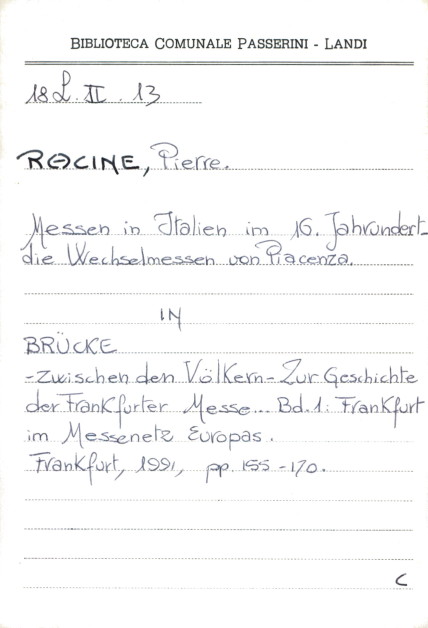 BIBLIOTECA COMUNALE PASSERINI - LANDI
18 L. II. 13
RACINE, Pierre.
Messen in Italien im 16. Jahrundert_
die Wechselmessen von Piacenza.
IN
BRÜCKE
- zwischen den Völkern - Zur Geschichte
der Frankfurter Messe... Bd. 1: Frankfurt
im Messenetz Europas.
Frankfurt, 1991, pp. 155-170.
C